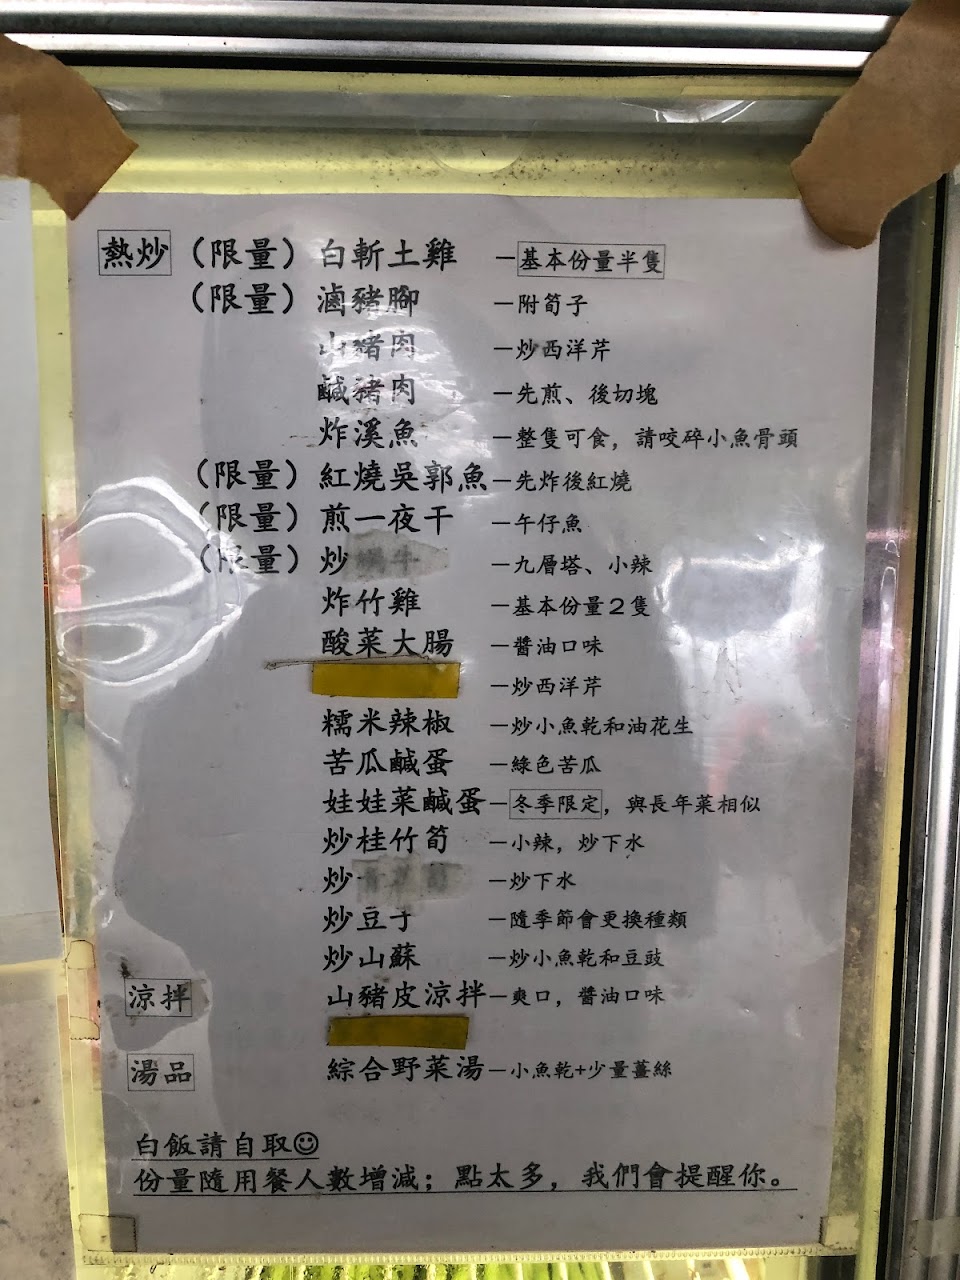 熱炒（限量）白斬土雞 －基本份量半隻
（限量）滷豬腳 －附筍子
山豬肉 －炒西洋芹
鹹豬肉 －先煎、後切塊
炸溪魚 －整隻可食，請咬碎小魚骨頭
（限量）紅燒吳郭魚－先炸後紅燒
（限量）煎一夜干 －午仔魚
（限量）炒蝸牛 －九層塔、小辣
炸竹雞 －基本份量2隻
酸菜大腸 －醬油口味
－炒西洋芹
糯米辣椒 －炒小魚乾和油花生
苦瓜鹹蛋 －綠色苦瓜
娃娃菜鹹蛋－冬季限定，與長年菜相似
炒桂竹筍 －小辣，炒下水
炒 －炒下水
炒豆子 －隨季節會更換種類
炒山蘇 －炒小魚乾和豆豉
涼拌 山豬皮涼拌－爽口，醬油口味
湯品 綜合野菜湯－小魚乾+少量薑絲
白飯請自取☺
份量隨用餐人數增減；點太多，我們會提醒你。